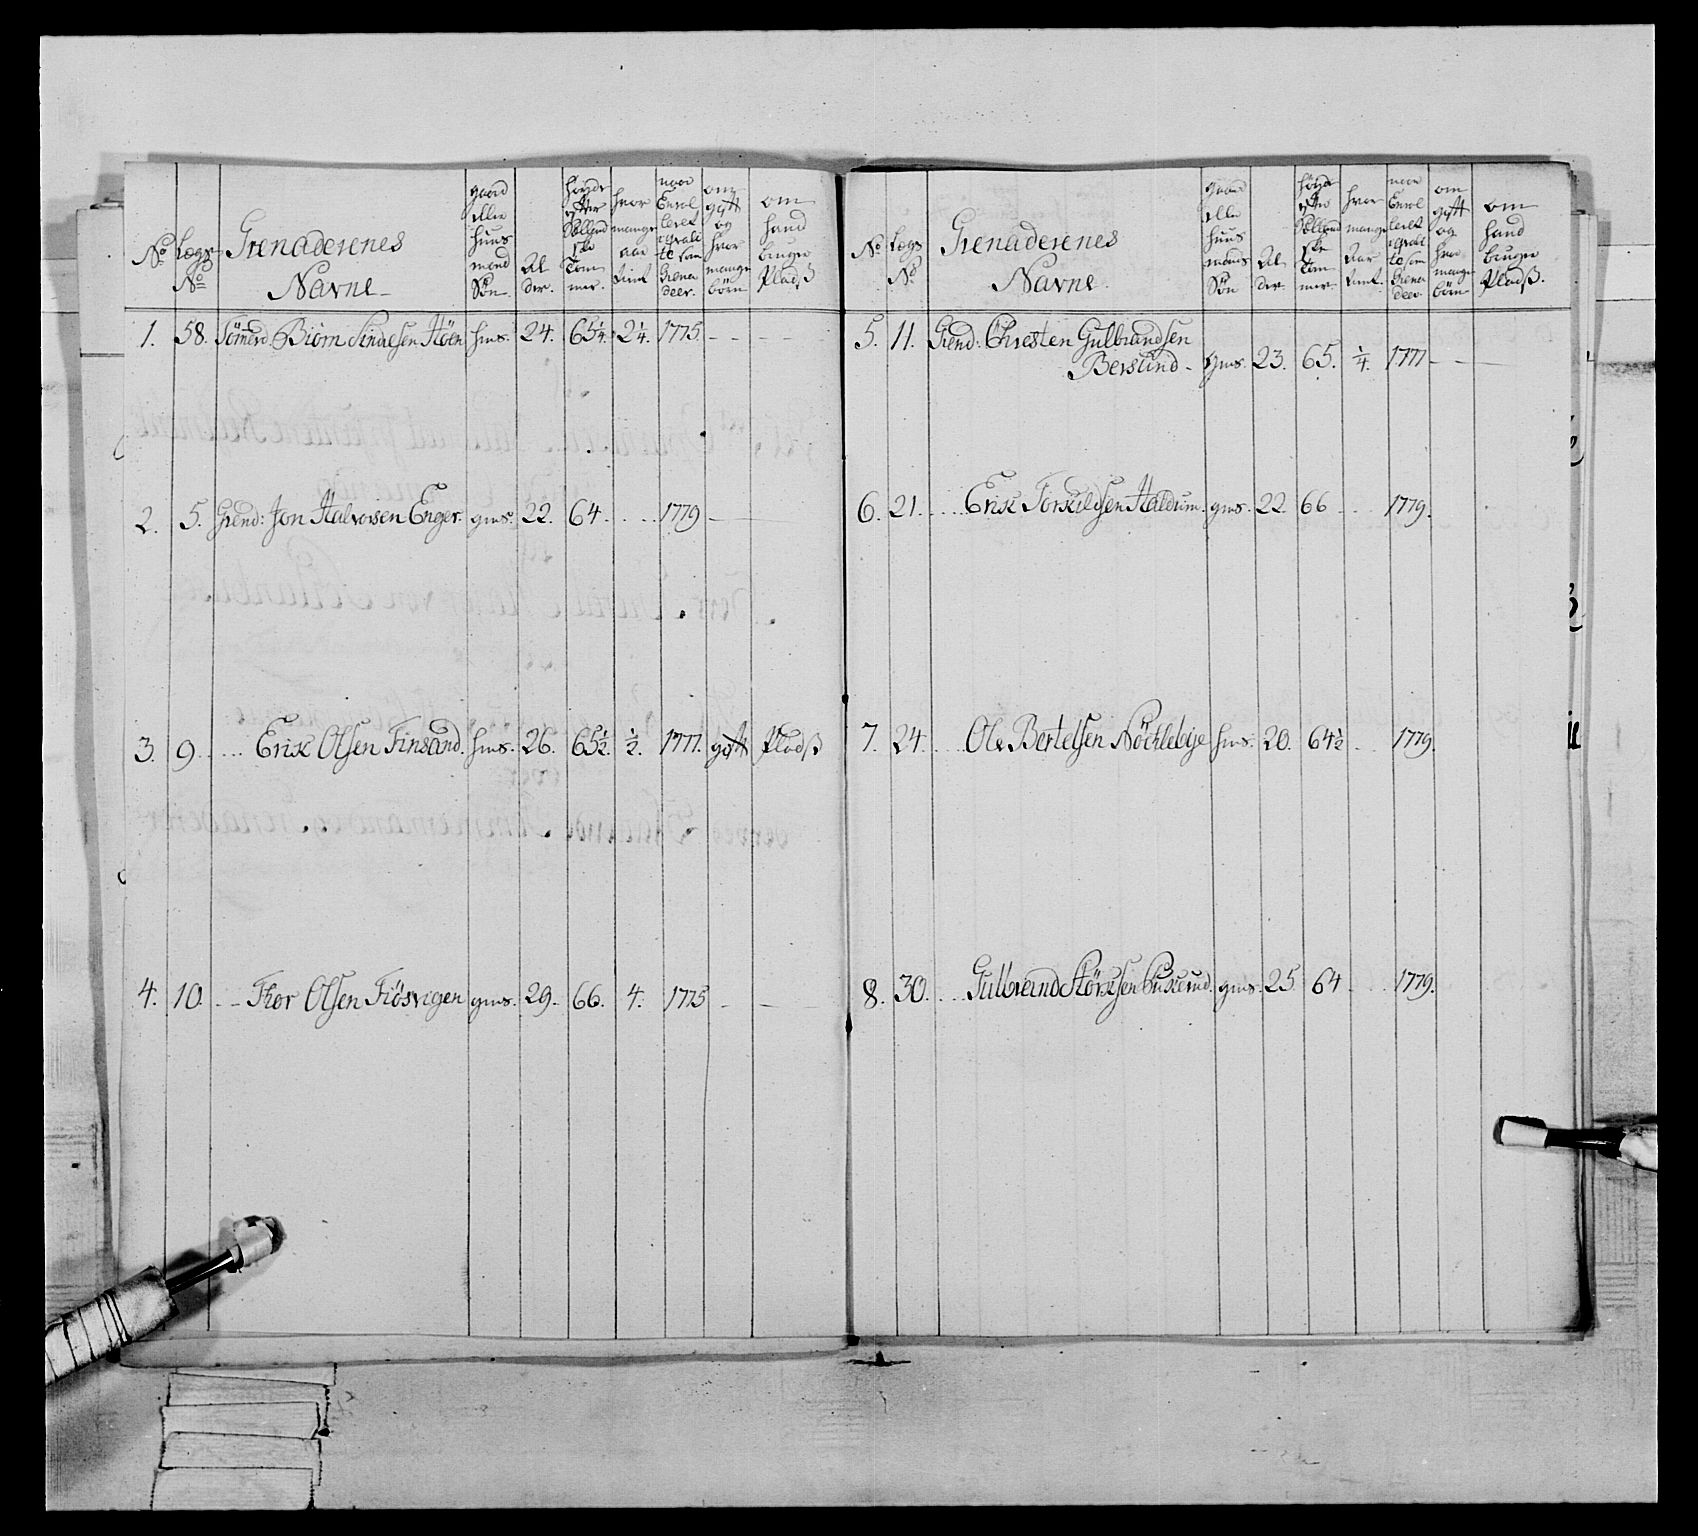 No Lægs No Grenaderenes Navne gaard eller huus mands Søn Al der. høyde efter Sællend ske Tom mer. hvor mange aar tient naar Enrol leret og rali te som Grena deer. om gift og hvor mange börn om hand bruger Pladß
1. 58. Tömerd. Biörn Sindresen Höen hms. 24. 65¼. 2¼. 1775. - - - -
2. 5. Grend: Jon Halvorsen Enger. gms. 22. 64. . . . . 1779 - -
3. 9. .... Erik Olsen Finsand. hms. 26. 65½. ½. 1777. gift Pladß
4. 10. - - Thor Olsen Fiösvigen gms. 29. 66. 4. 1775 - -
No Lægs No Grenaderenes Navne. gaard eller huus mands Søn Al der. höyde efter Sællend ske Tom mer. hvor mange Aar tient. naar Enrol leret te som Grena deer. om gift og hvor mange börn om hand bruger Pladß.
5. 11. Grend: Christen Gulbrandsen
Berslund - gms. 23. 65. ¼. 1777 - - -
6. 21. .... Erik Torkildsen Haldum. gms. 22. 66 . . . 1779.
7. 24. .... Ole Bertelsen Nöcklebye hms. 20. 64½ . . 1779.
8. 30. .... Gulbrand Störksen gms. 25 64 . . . 1779.